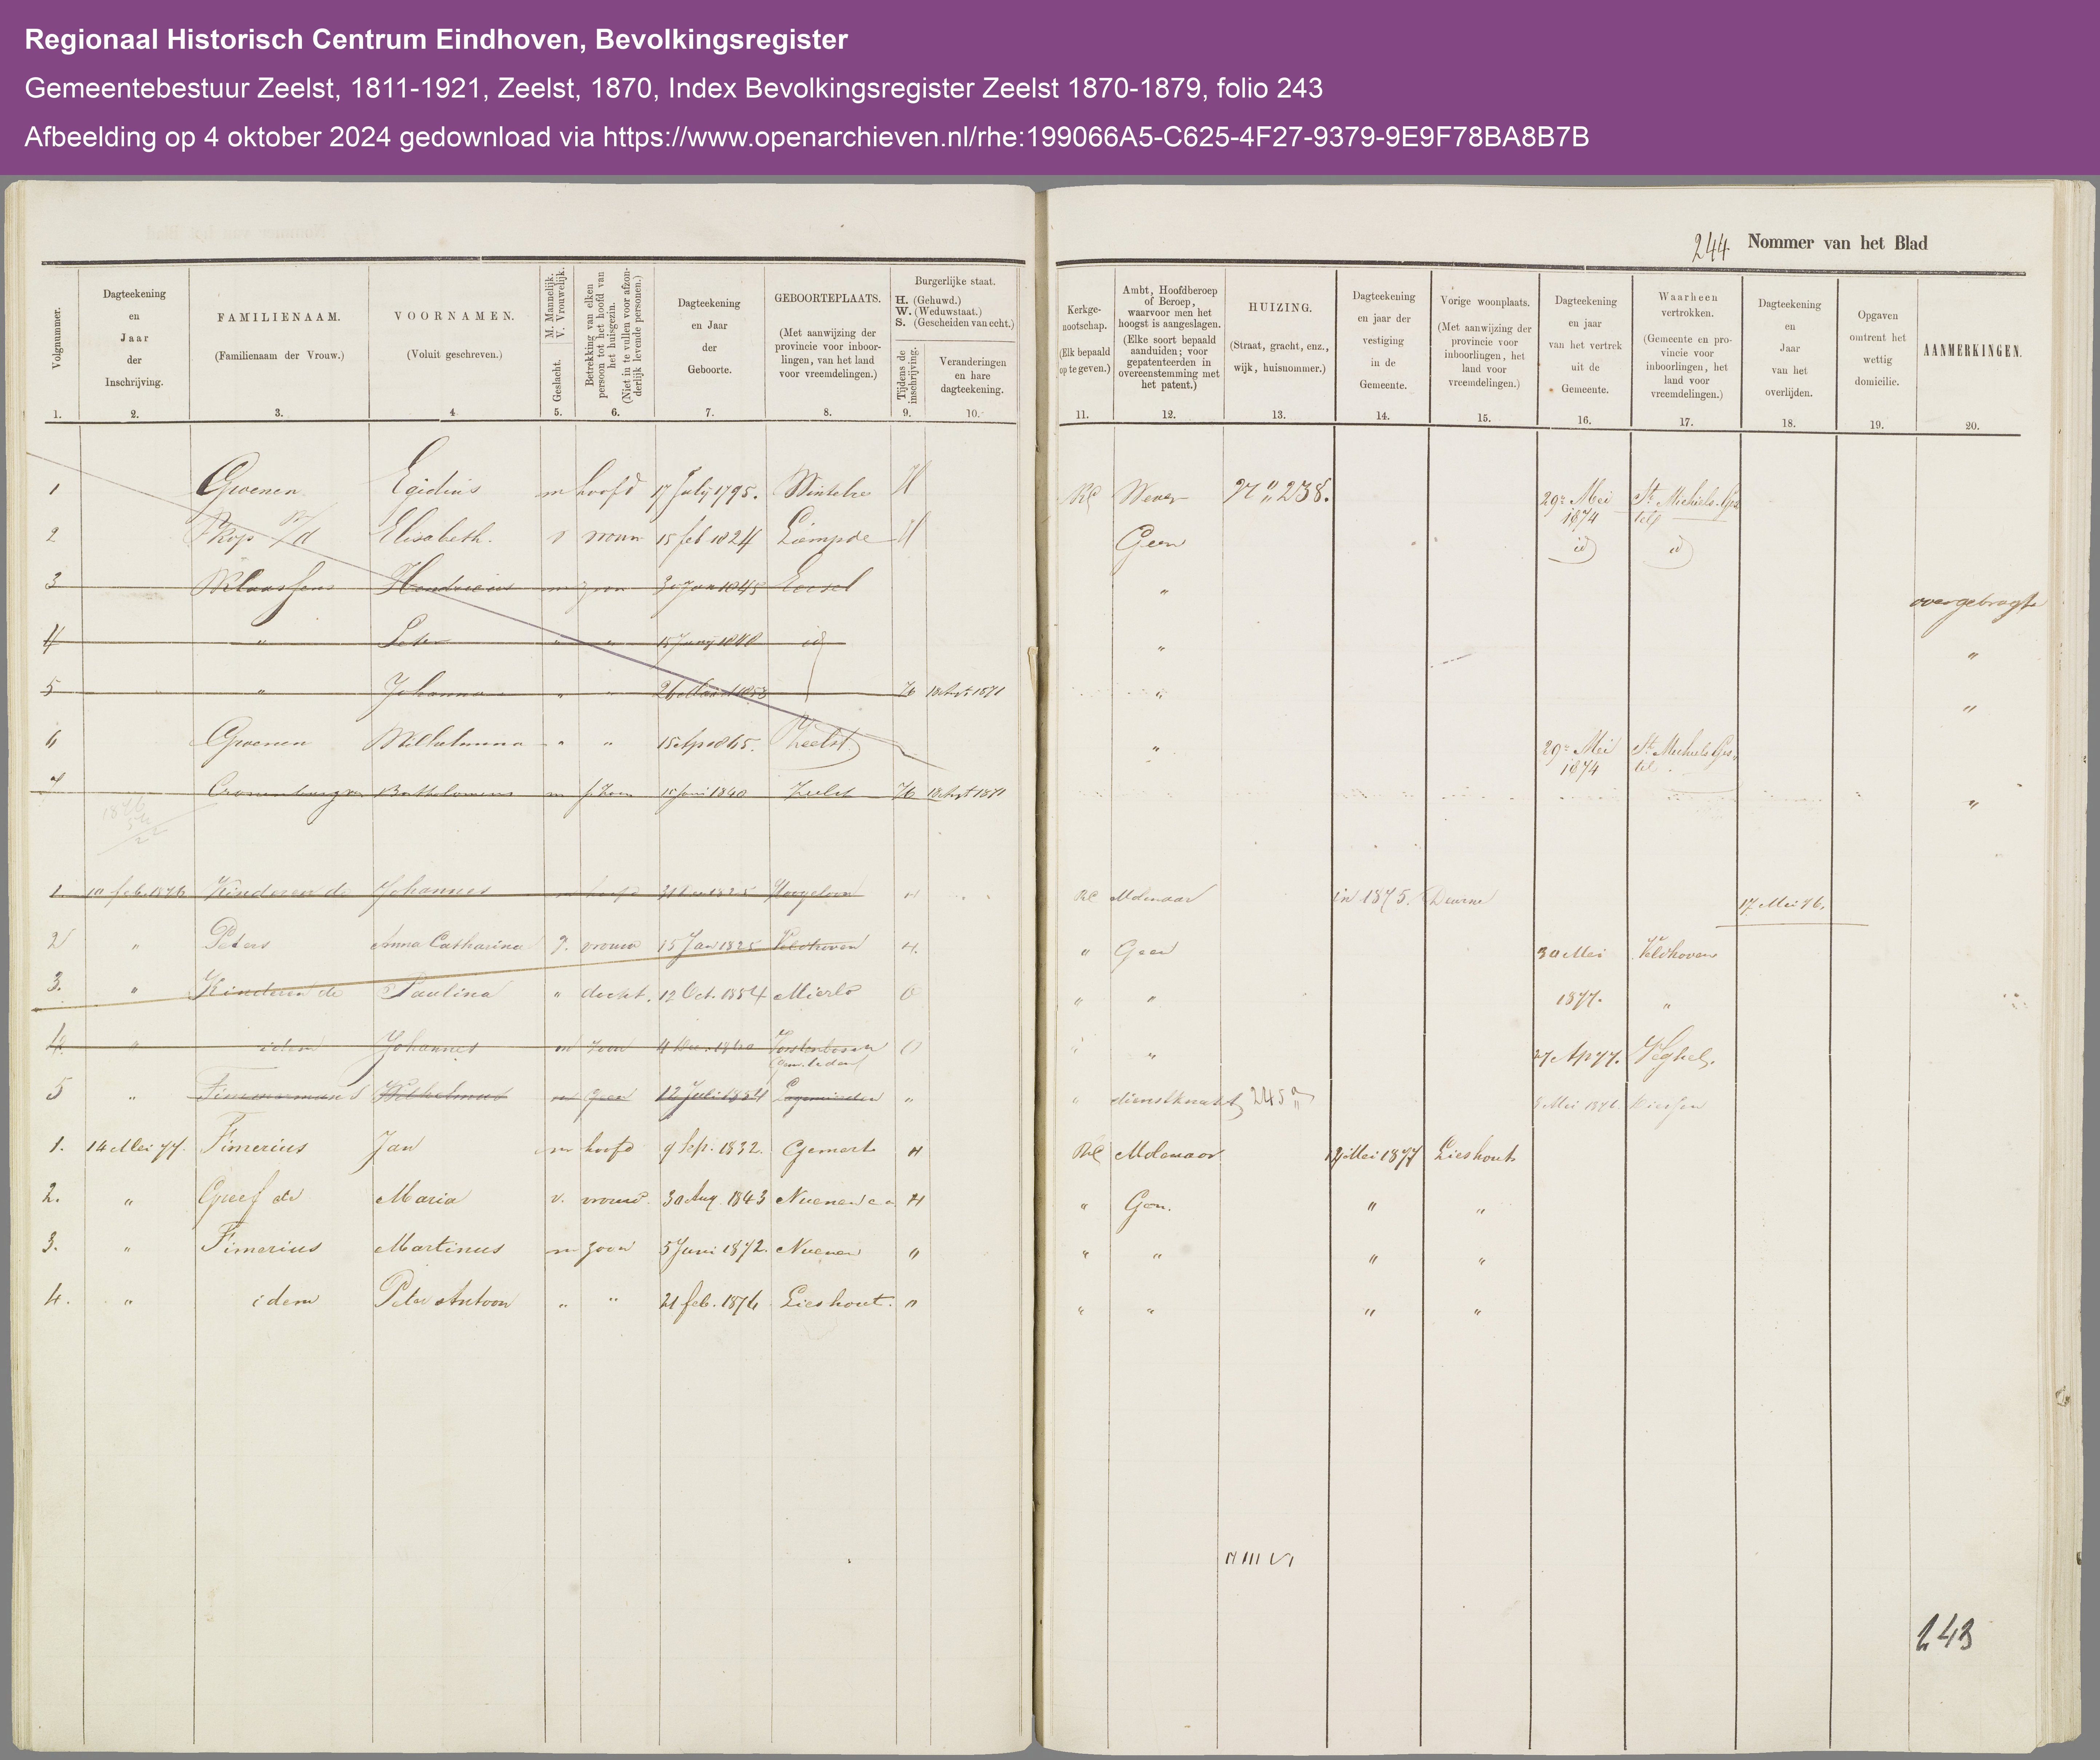 Regionaal Historisch Centrum Eindhoven, Bevolkingsregister
Gemeentebestuur Zeelst, 1811-1921, Zeelst, 1870, Index Bevolkingsregister Zeelst 1870-1879, folio 243
Afbeelding op 4 oktober 2024 gedownload via https://www.openarchieven.nl/rhe:199066A5-C625-4F27-9379-9E9F78BA8B7B
244 Nommer van het Blad
Volgnummer. 1.
Dagteekening en Jaar der Inschrijving. 2.
FAMILIENAAM. (Familienaam der Vrouw.) 3.
VOORNAMEN. (Voluit geschreven.) 4
M. Mannelijk. V. Vrouwelijk. Geslacht. 5.
Betrekking van elken persoon tot het hoofd van het huisgezin. (Niet in te vullen voor afzonderlijk levende personen.) 6.
Dagteekening en Jaar der Geboorte. 7.
GEBOORTEPLAATS. (Met aanwijzing der provincie voor inboorlingen, van het land voor vreemdelingen.) 8.
Burgerlijke staat. H. (Gehuwd.) W. (Weduwstaat.) S. (Gescheiden van echt.)
Tijdens de inschrijving. 9.
Veranderingen en hare dagteekening. 10.
Kerkgenootschap. (Elk bepaald op te geven.) 11.
Ambt, Hoofdberoep of Beroep, waarvoor men het hoogst is aangeslagen. (Elke soort bepaald aanduiden; voor gepatenteerden in overeenstemming met het patent.) 12.
HUIZING. (Straat, gracht, enz., wijk, huisnommer.) 13.
Dagteekening en jaar der vestiging in de Gemeente. 14.
Vorige woonplaats. (Met aanwijzing der provincie voor inboorlingen, het land voor vreemdelingen.) 15.
Dagteekening en jaar van het vertrek uit de Gemeente. 16.
Waarheen vertrokken. (Gemeente en provincie voor inboorlingen, het land voor vreemdelingen.) 17.
Dagteekening en Jaar van het overlijden. 18.
Opgaven omtrent het wettig domicilie. 19.
AANMERKINGEN. 20.
1 Groenen Egidius m hoofd 17 July 1795. Wintelre H RC Wever N " 238. 29 Mei 1874 St. Michiels Gestel
2 Elisabeth. v vrouw 15 feb 1824 Liempde H Geen id id
3 Klaassens Hendricus m zoon 30 Jan 1845 Eersel " overgebragt
4 " Peter " " 15 Junij 1848 id " "
5 " Johanna " " 26 Maart 1853 1871 " "
6 Groenen Wilhelmina " " 15 Apr 1865. Zeelst " 29 Mei 1874 St. Michiels Gestel
7 m 15 Juni 1840 Zeelst 1871 "
1876
1. 10 feb. 1876 Kinderen de Johannes m hoofd 1825 Hoogeloon H RC Molenaar in 1875. Deurne 17 Mei 76.
2 " Peters Anna Catharina v. vrouw 15 Jan 1825 Veldhoven H. " Geen 30 Mei Veldhoven
3. " Kinderen de Paulina " docht. 12 Oct. 1854 Mierlo O " " 1877. "
4. " idem Johannes m zoon 4 Dec. 1860 Vorstenbosch O " " 27 Ap 77. Veghel.
5 " Timmermans Wilhelmus m geen 12 Juli 1854 " " dienstknecht 245 5 Mei 1876
1. 14 Mei 77. Fimerius Jan m hoofd 9 Sep. 1832. Gemert H RC Molenaar 12 Mei 1877 Lieshout
2. " Greef de Maria v. vrouw. 30 Aug. 1843 Nuenen H " Gen. " "
3. " Fimerius Martinus m zoon 5 Juni 1872. Nuenen " " " " "
4. " idem Peter Antoon " " 21 feb. 1876 Lieshout. " " " " "
243